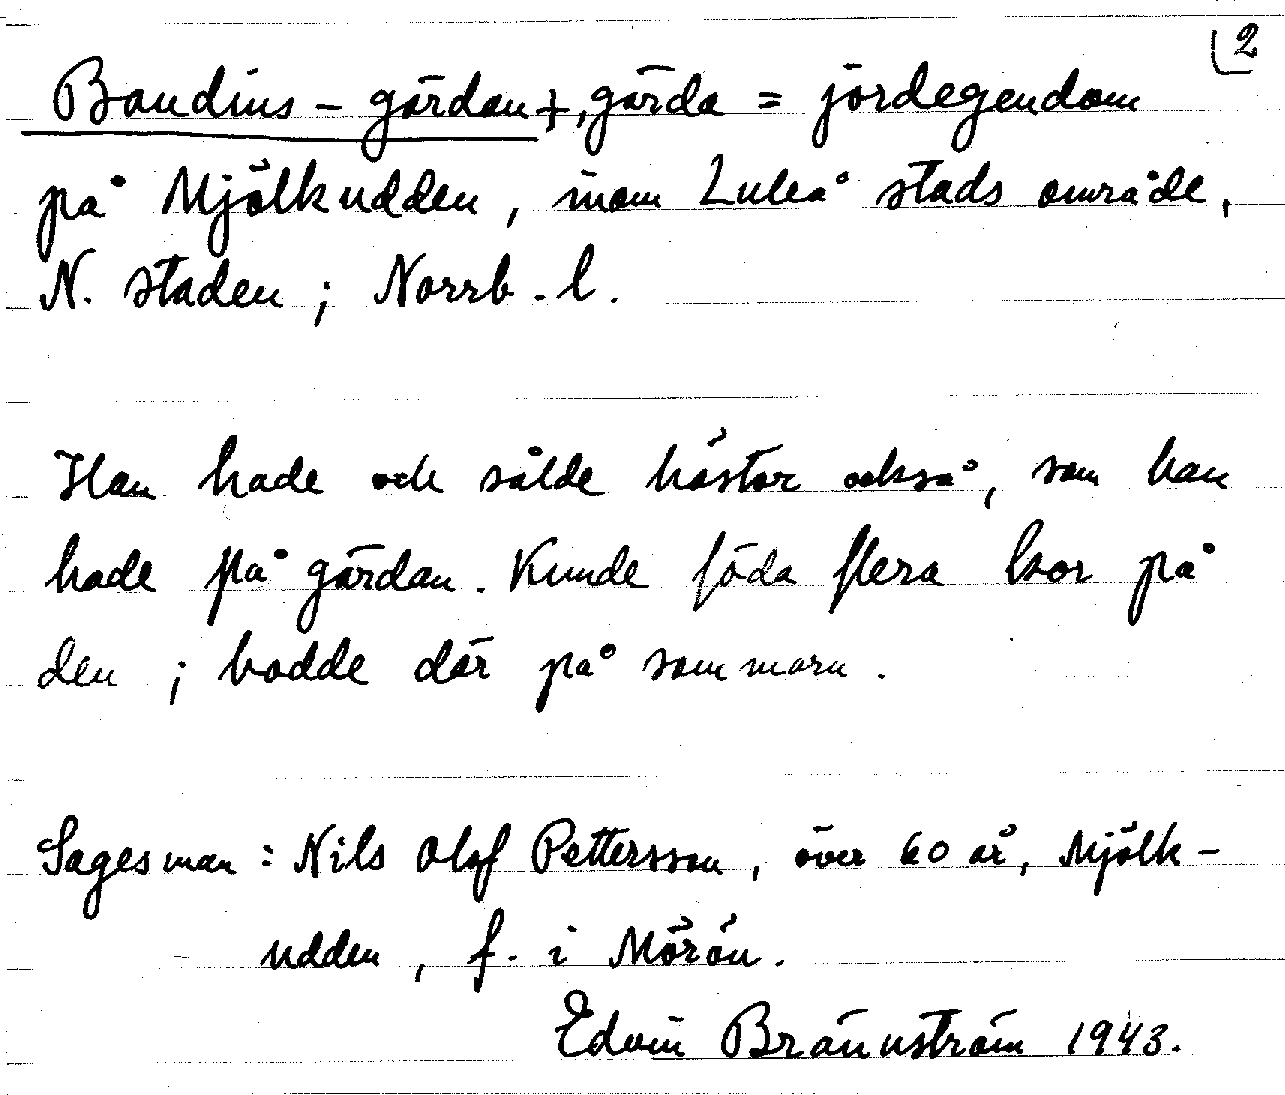 2
Baudins-gärdan +, gärda = jordegendom
på Mjölkudden, inom Luleå stads område,
N. staden; Norrb. l.
Han hade och sålde hästar också, som han
hade på gärdan. Kunde föda flera kor på
den; bodde där på sommarn.
Sagesman: Nils Olof Pettersson, över 60 år, Mjölk-
udden, f. i Mörön.
Edvin Brännström 1943.